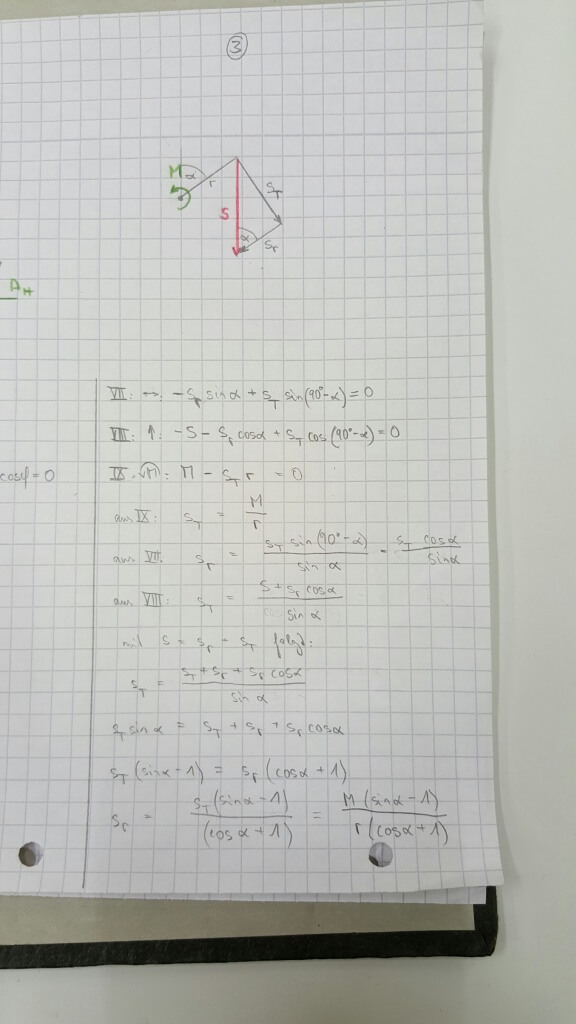 ③
M α r
S
S_T
α
S_r
A_H
cosφ = 0
VII: →: -S_r sinα + S_T sin(90°-α) = 0
VIII: ↑: -S - S_r cosα + S_T cos(90°-α) = 0
IX: M: M - S_T r = 0
aus IX: S_T = M/r
aus VII: S_r = S_T sin(90°-α) / sin α = S_T cosα / sinα
aus VIII: S_T = S + S_r cosα / sin α
mit S = S_r - S_T folgt:
S_T = S_T + S_r + S_r cosα / sin α
S_T sin α = S_T + S_r + S_r cosα
S_T (sinα - 1) = S_r (cosα + 1)
S_r = S_T (sinα - 1) / (cosα + 1) = M (sinα - 1) / r (cosα + 1)